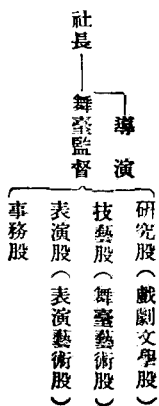 社長
導演
舞臺監督
研究股(戲劇文學股)
技藝股(舞臺藝術股)
表演股(表演藝術股)
事務股